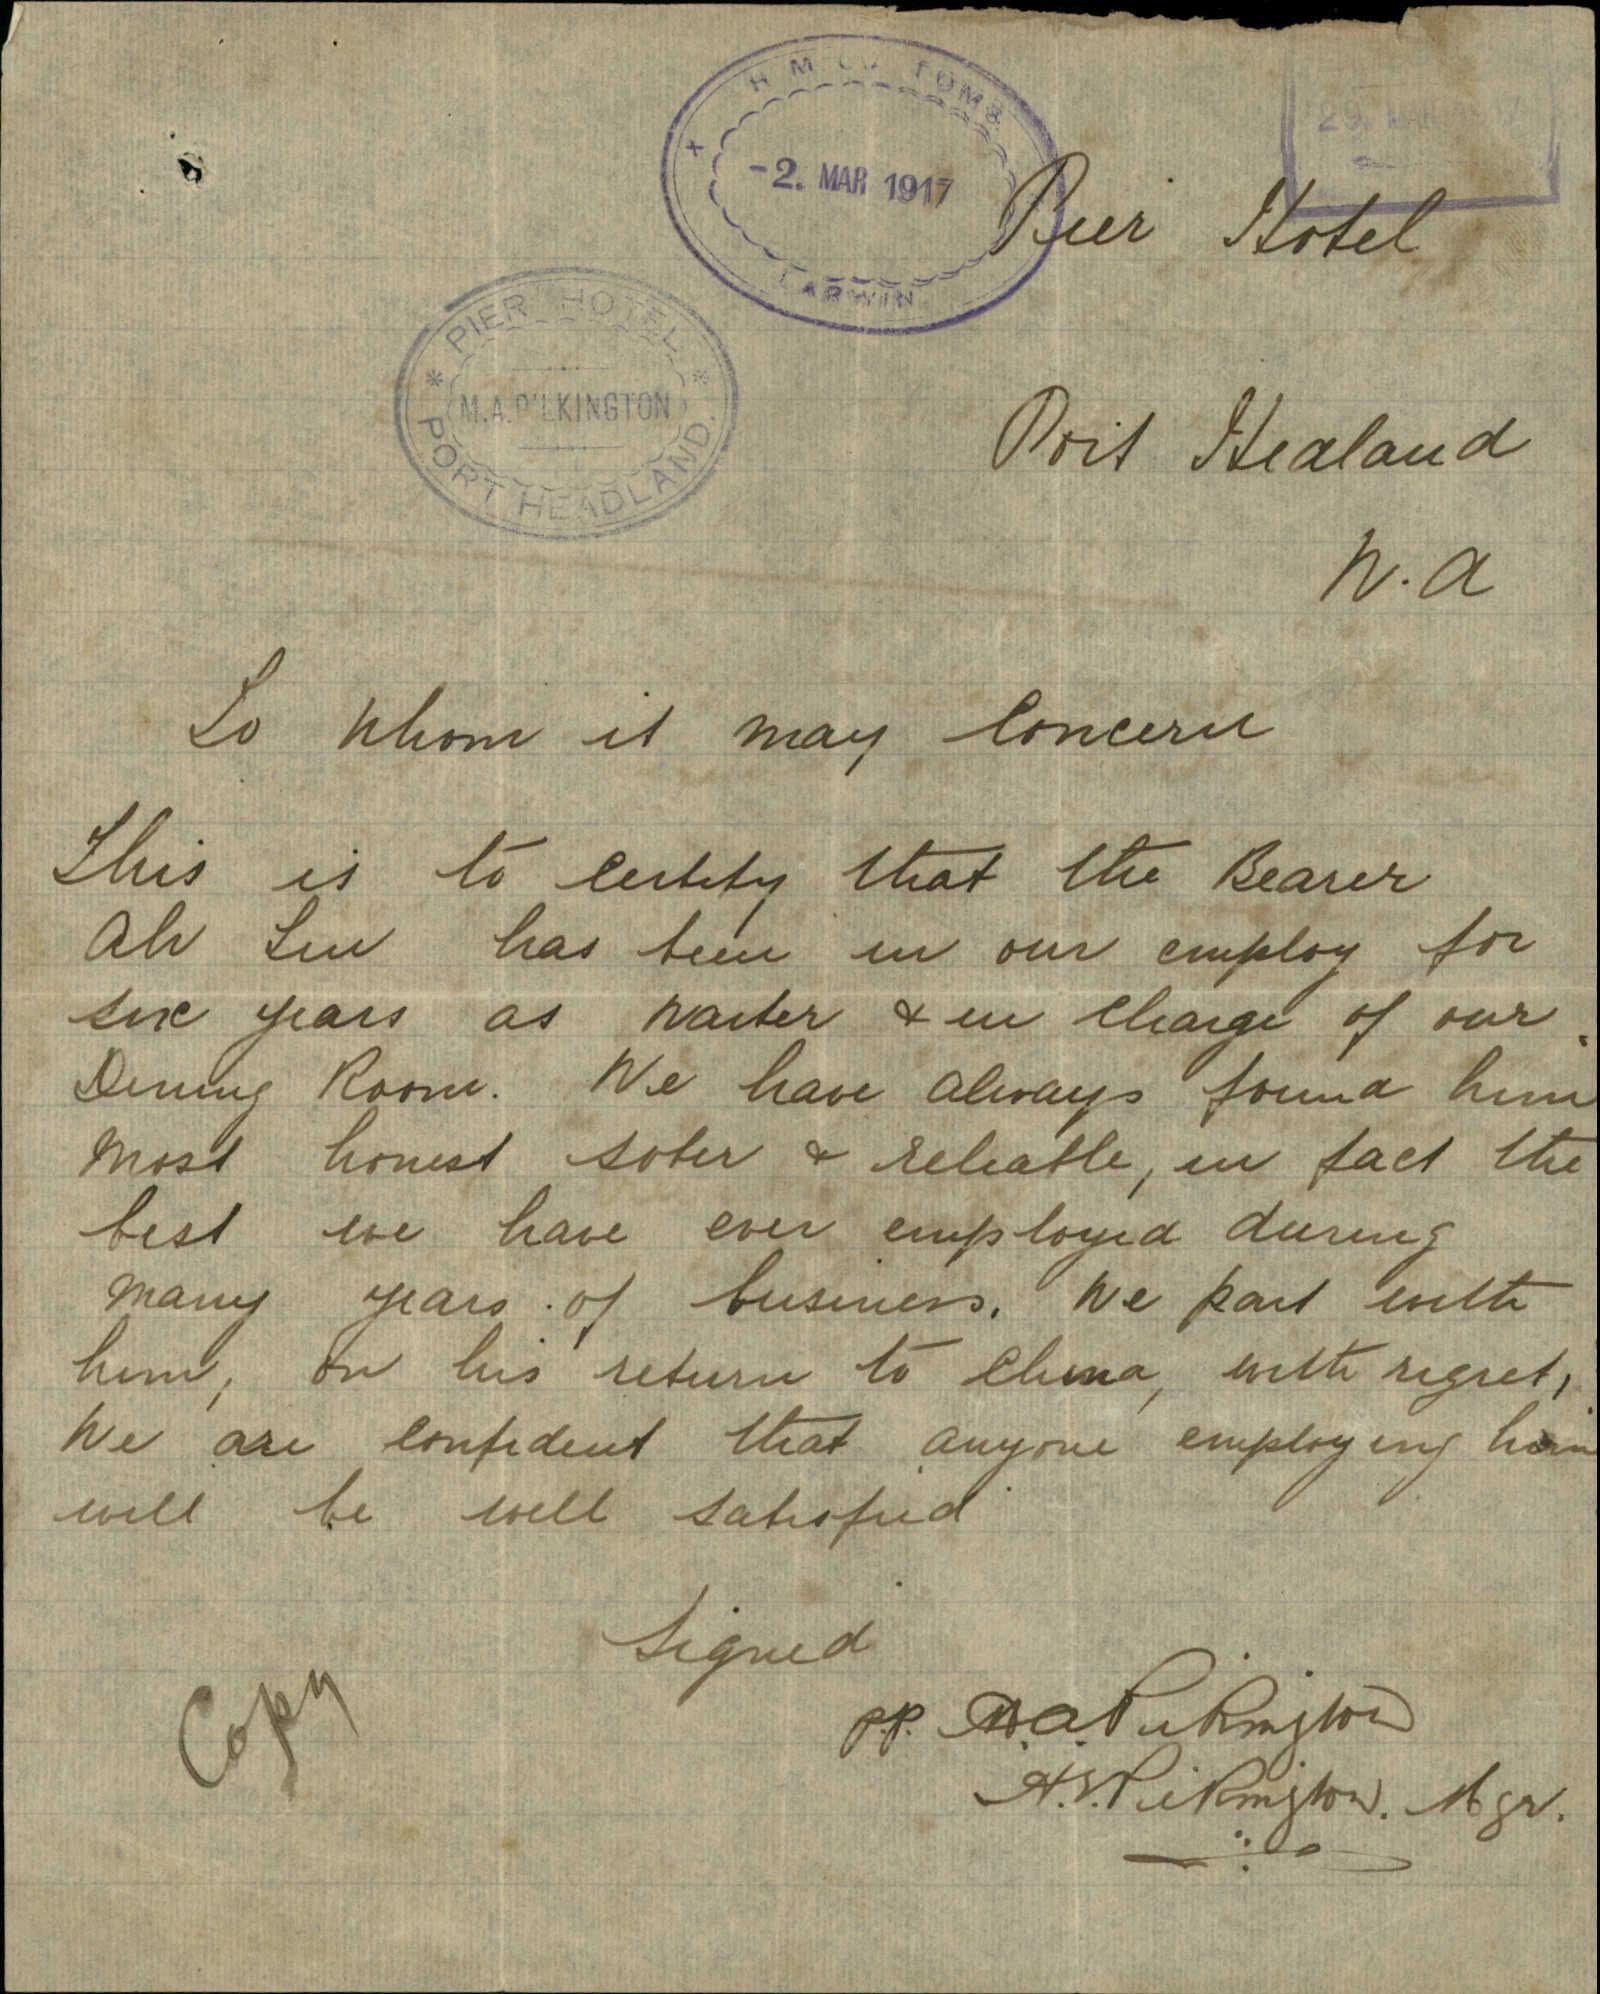 H M CUSTOMS
-2. MAR 1917
DARWIN
29. MAR 17
Pier Hotel
PIER HOTEL
M.A. PILKINGTON
PORT HEADLAND.
Port Hedland
W. A
To Whom it may Concern
This is to Certify that the Bearer
Ah Lin has been in our employ for
six years as Waiter & in Charge of our
Dining Room. We have always found him
Most honest sober & reliable, in fact the
best we have ever employed during
Many years of business. We part with
him, on his return to China, with regret,
We are confident that anyone employing him
will be well satisfied
Signed
Copy
p.p. M.A. Pilkington
Pilkington. Mgr.